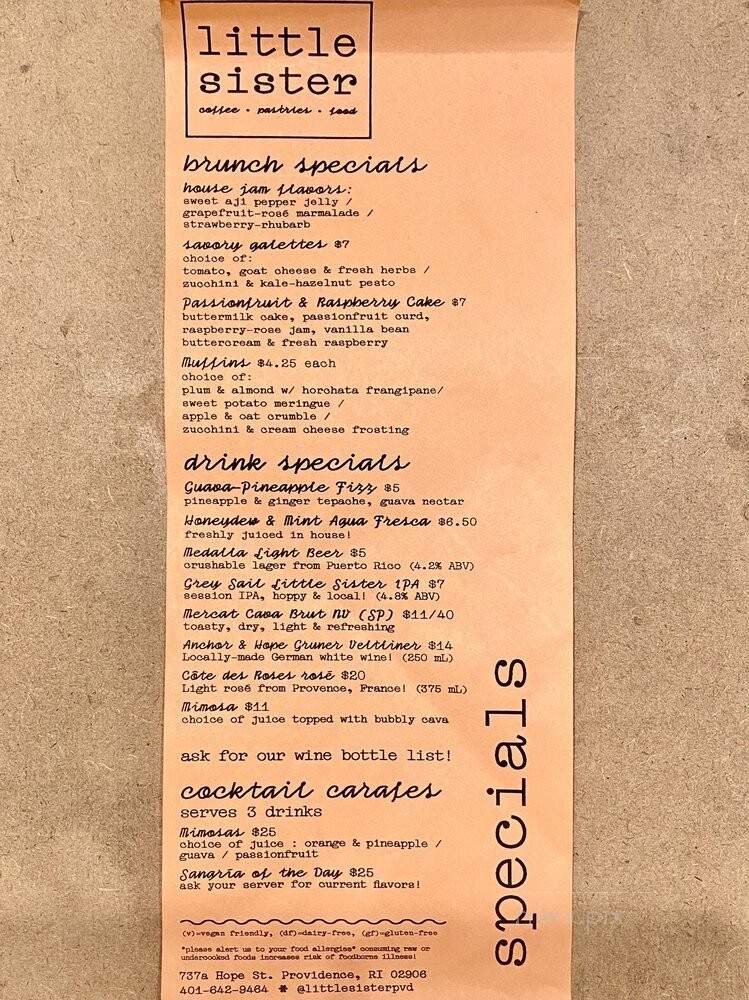 little
sister
coffee • pastries • food
brunch specials
house jam flavors:
sweet aji pepper jelly /
grapefruit-rosé marmalade /
strawberry-rhubarb
savory galettes $7
choice of:
tomato, goat cheese & fresh herbs /
zucchini & kale-hazelnut pesto
Passionfruit & Raspberry Cake $7
buttermilk cake, passionfruit curd,
raspberry-rose jam, vanilla bean
buttercream & fresh raspberry
Muffins $4.25 each
choice of:
plum & almond w/ horchata frangipane/
sweet potato meringue /
apple & oat crumble /
zucchini & cream cheese frosting
drink specials
Guava-Pineapple Fizz $5
pineapple & ginger tepache, guava nectar
Honeydew & Mint Agua Fresca $6.50
freshly juiced in house!
Medalla Light Beer $5
crushable lager from Puerto Rico (4.2% ABV)
Grey Sail Little Sister IPA $7
session IPA, hoppy & local! (4.8% ABV)
Mercat Cava Brut NV (SP) $11/40
toasty, dry, light & refreshing
Anchor & Hope Gruner Veltliner $14
Locally-made German white wine! (250 mL)
Côte des Roses rosé $20
Light rosé from Provence, France! (375 mL)
Mimosa $11
choice of juice topped with bubbly cava
ask for our wine bottle list!
cocktail carafes
serves 3 drinks
Mimosas $25
choice of juice : orange & pineapple /
guava / passionfruit
Sangria of the Day $25
ask your server for current flavors!
specials
(v)=vegan friendly, (df)=dairy-free, (gf)=gluten-free
*please alert us to your food allergies* consuming raw or
undercooked foods increases risk of foodborne illness!
737a Hope St. Providence, RI 02906
401-642-9464 @littlesisterpvd